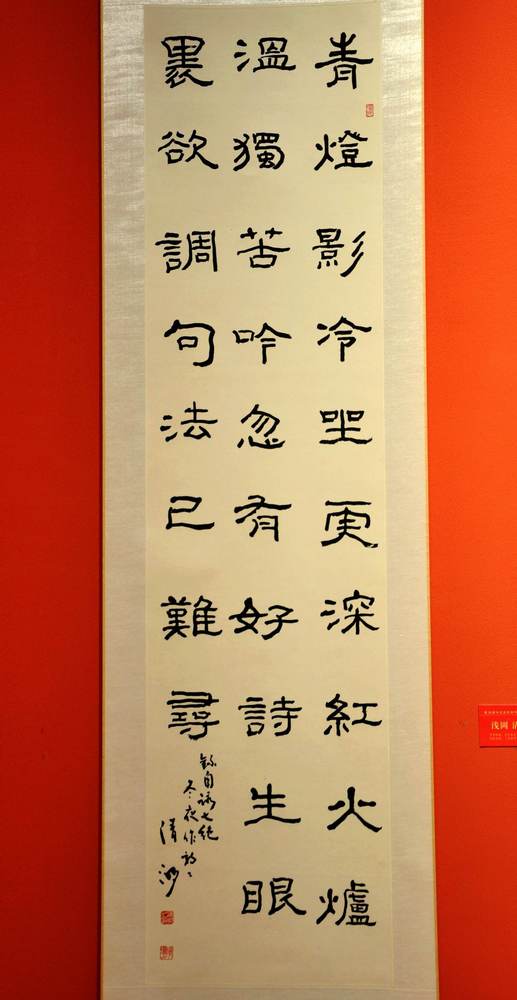 青燈影冷坐更深紅火爐
溫獨苦吟忽有好詩生眼
裏欲調句法已難尋
錄自詠七絕
冬夜作詩
清
浅岡